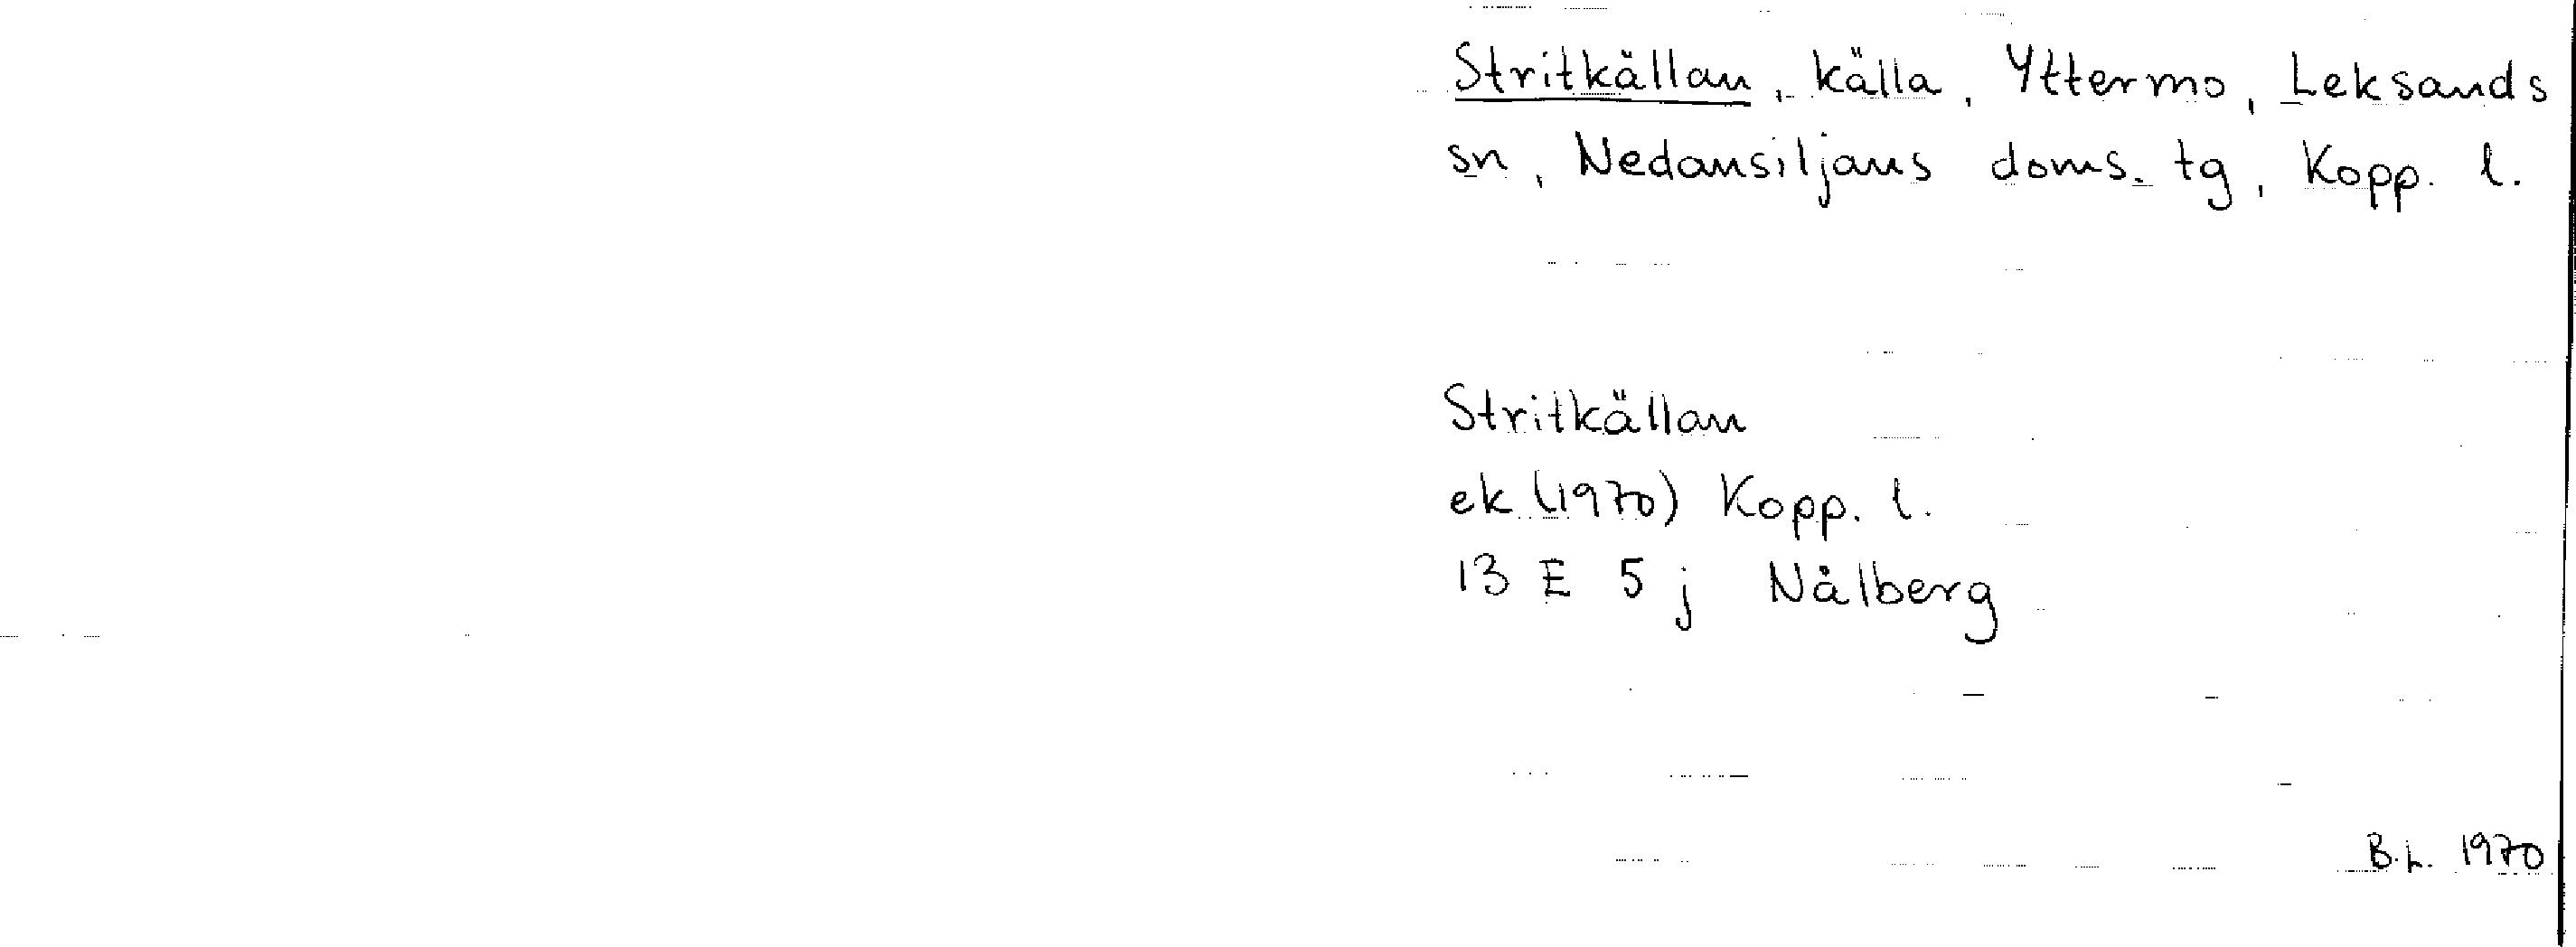 Stritkällan, källa, Yttermo, Leksands
sn, Nedansiljans doms. tg, Kopp. l.
Stritkällan
ek (1970) Kopp. l.
13 E 5 j Nålberg
B.L. 1970